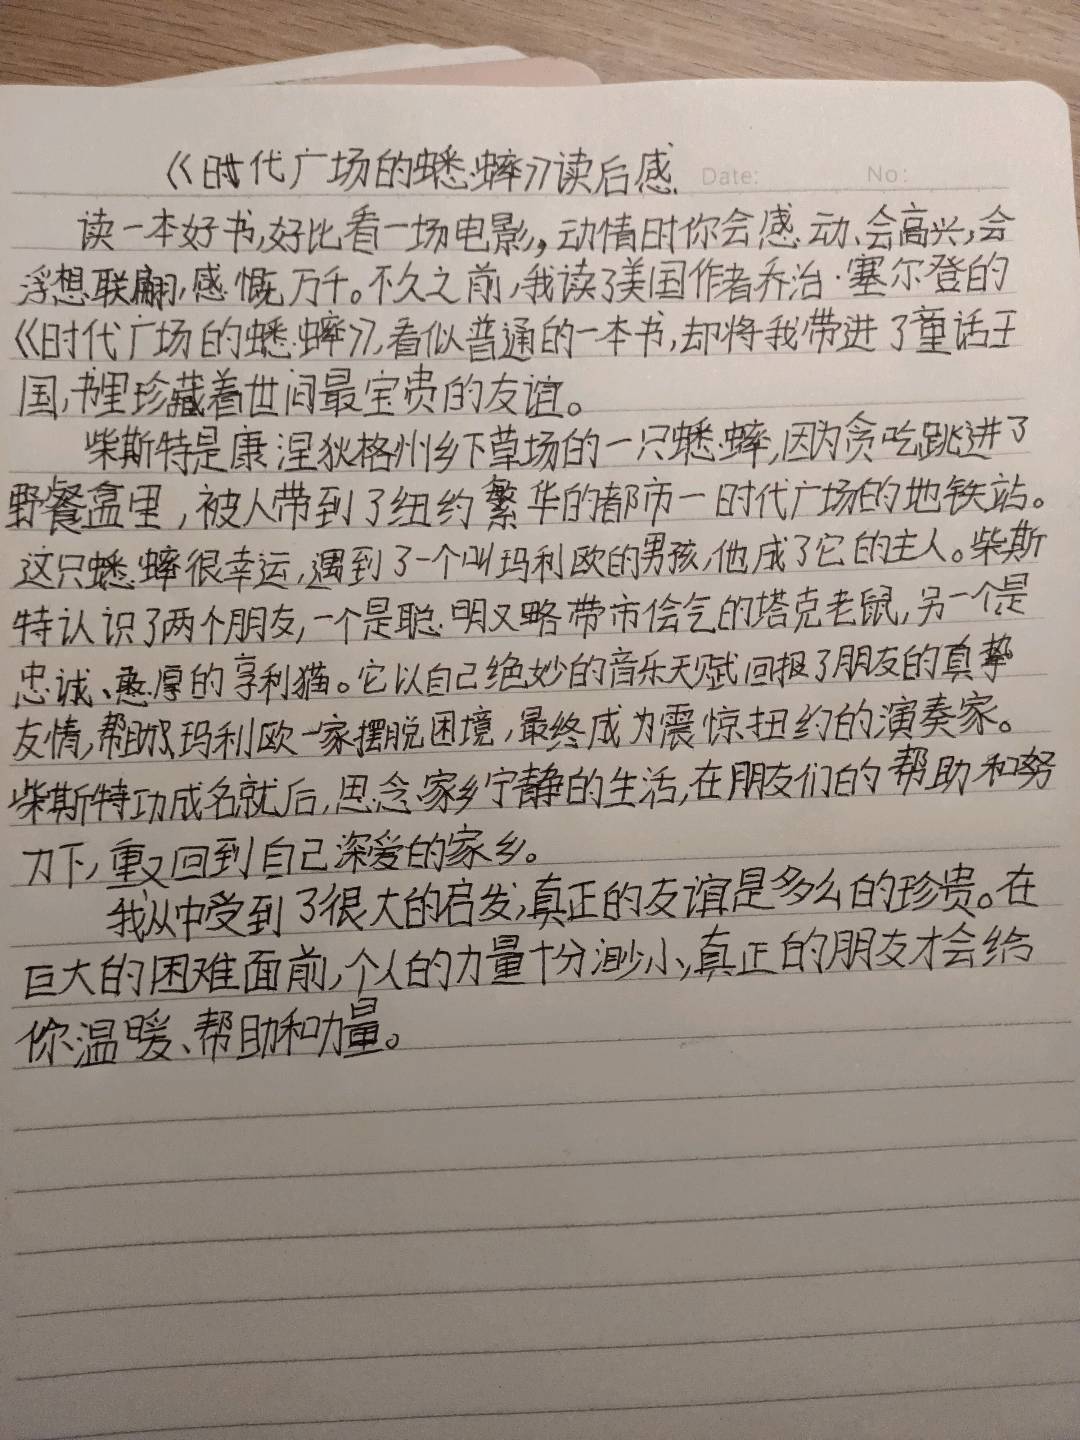 《时代广场的蟋蟀》读后感
Date: No:
读一本好书,好比看一场电影,动情时你会感动、会高兴,会
浮想联翩,感慨万千。不久之前,我读了美国作者乔治·塞尔登的
《时代广场的蟋蟀》,看似普通的一本书,却将我带进了童话王
国,书里珍藏着世间最宝贵的友谊。
柴斯特是康涅狄格州乡下草场的一只蟋蟀,因为贪吃跳进了
野餐盒里,被人带到了纽约繁华的都市一时代广场的地铁站。
这只蟋蟀很幸运,遇到了一个叫玛利欧的男孩,他成了它的主人。柴斯
特认识了两个朋友,一个是聪明又略带市侩气的塔克老鼠,另一个是
忠诚、憨厚的亨利猫。它以自己绝妙的音乐天赋回报了朋友的真挚
友情,帮助玛利欧一家摆脱困境,最终成为震惊扭约的演奏家。
柴斯特功成名就后,思念家乡宁静的生活,在朋友们的帮助和努
力下,重又回到自己深爱的家乡。
我从中受到了很大的启发,真正的友谊是多么的珍贵。在
巨大的困难面前,个人的力量十分渺小,真正的朋友才会给
你温暖、帮助和力量。